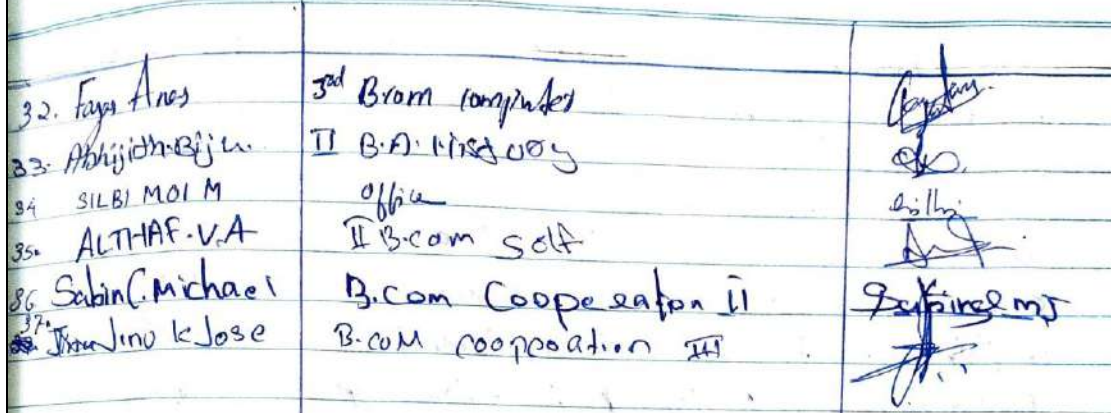 32. Fayas Anas 3rd Bcom computer
33. Abhijith Biju. II B.A. History
34 SILBI MOL M office
35. ALTHAF.V.A II B.com Self
36 Sabin C. Michael B.com Cooperation II
37. Jinu K Jose B.coM cooperation III